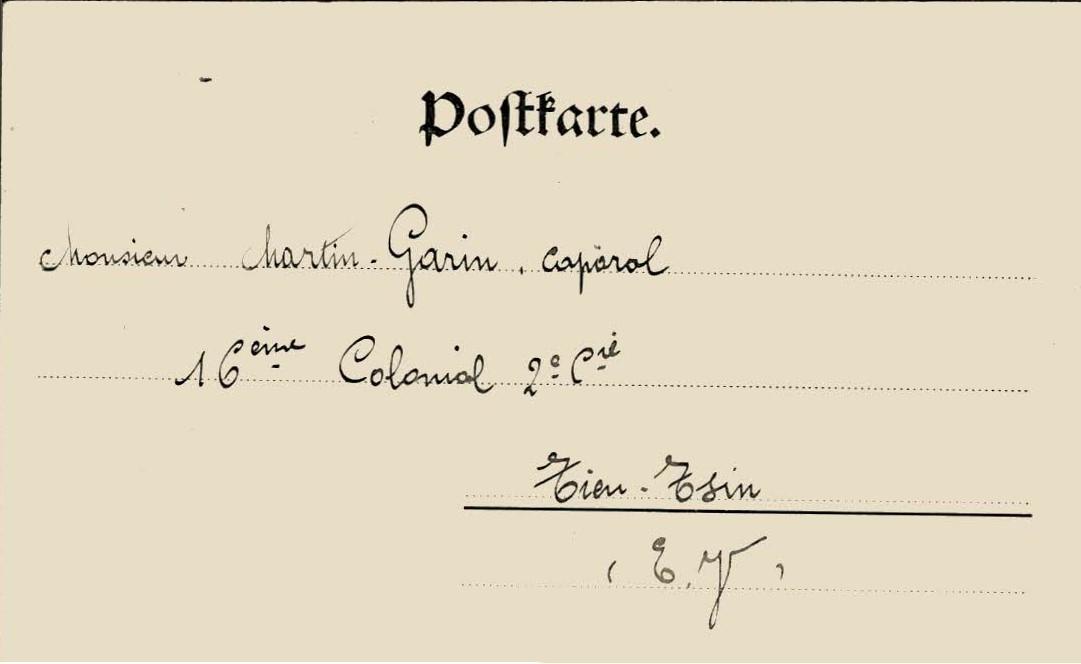 Postkarte.
Monsieur Martin-Garin, caporal
16ème Colonial 2e Cie
Tien-Tsin